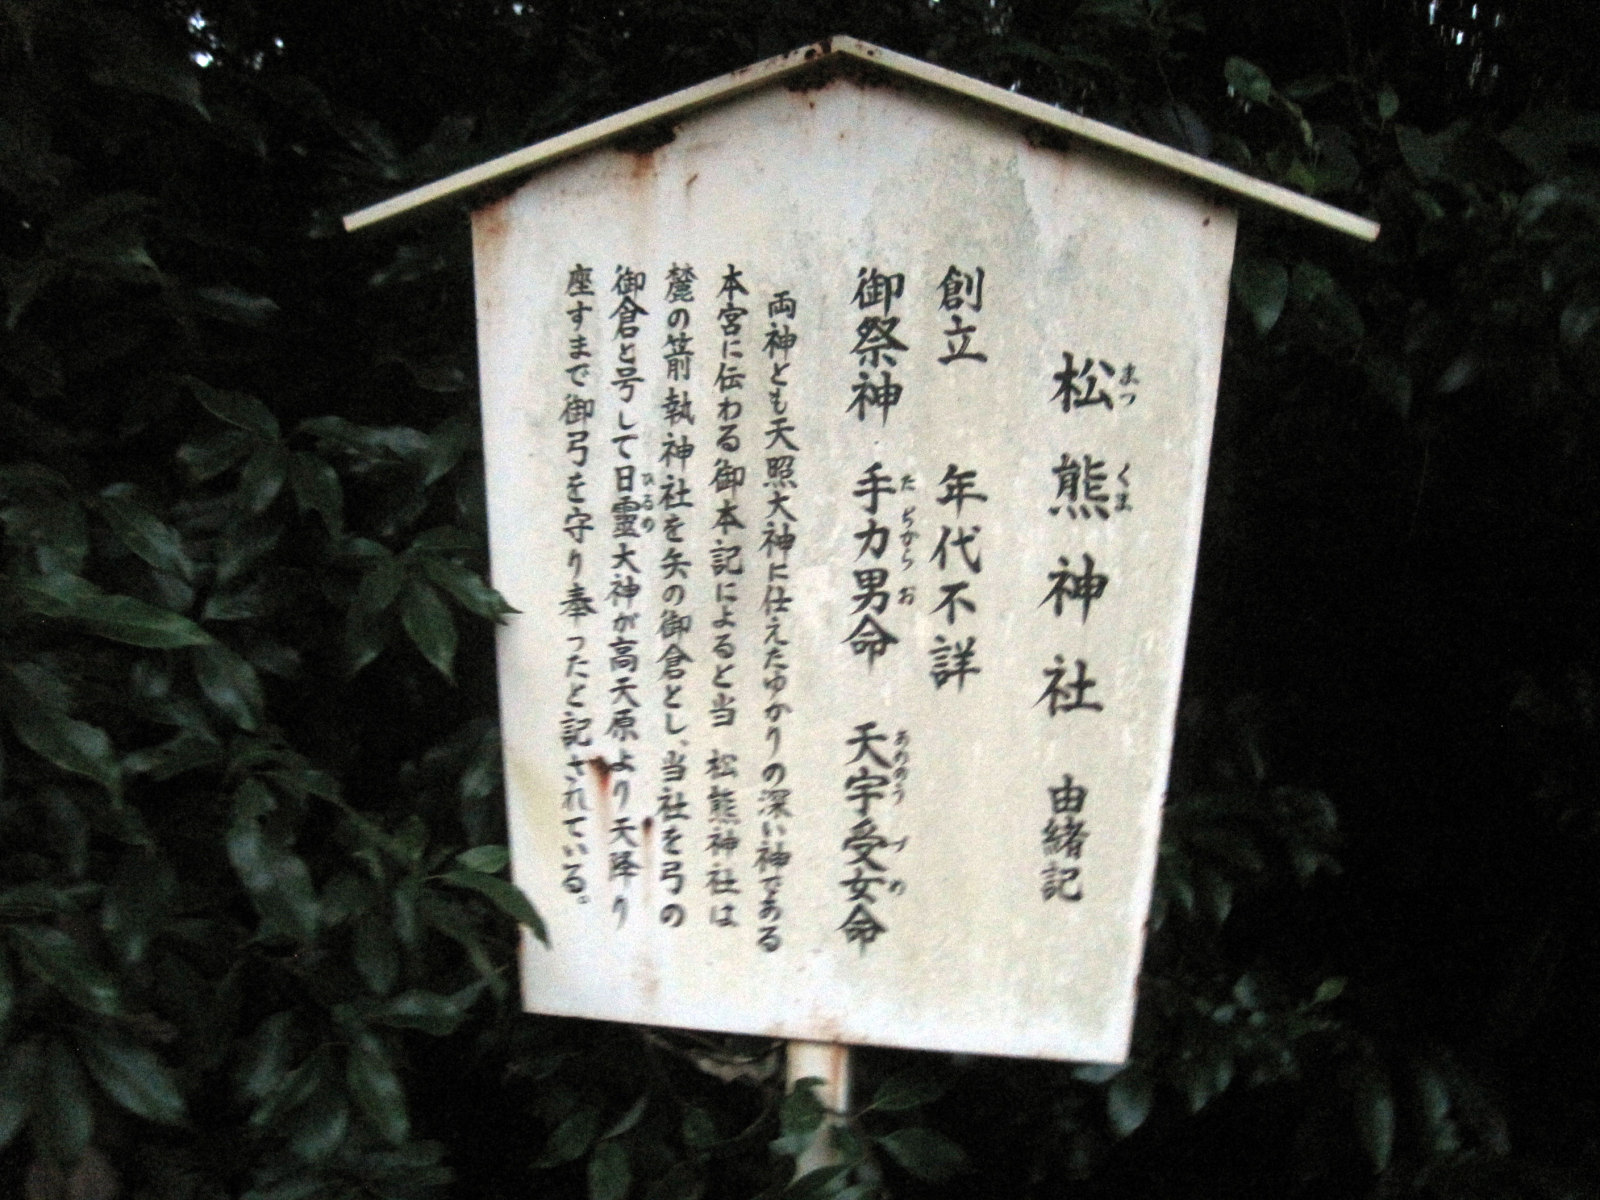 松熊神社 由緒記
まつ くま
創立 年代不詳
御祭神 手力男命 天宇受女命
たぢからお あめのうづめ
両神とも天照大神に仕えたゆかりの深い神である
本宮に伝わる御本記によると当 松熊神社は
麓の箭執神社を矢の御倉とし、当社を弓の
御倉と号して日霊大神が高天原より天降り
ひるめ
座すまで御弓を守り奉ったと記されている。